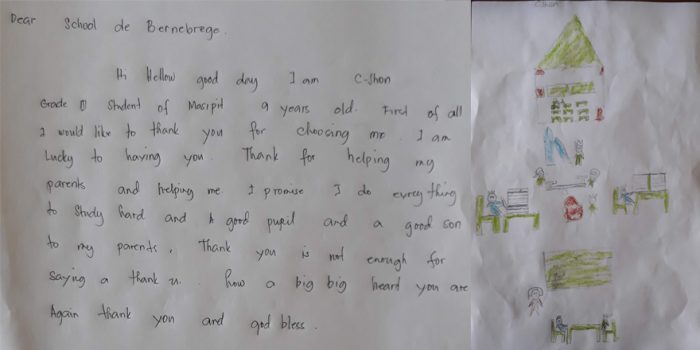 Dear School de Bernebrege.
Hi Hellow good day I am C-Shon
Grade Student of Masipit 9 years old. First of all
I would like to thank you for choosing me. I am
Lucky to having you. Thank for helping my
parents and helping me I promise I do evrey thing
to study hard and good pupil and a good son
to my parents. Thank you is not enough for
saying a thank u. how a big big heard you are
Again thank you and god bless.
C-Shon